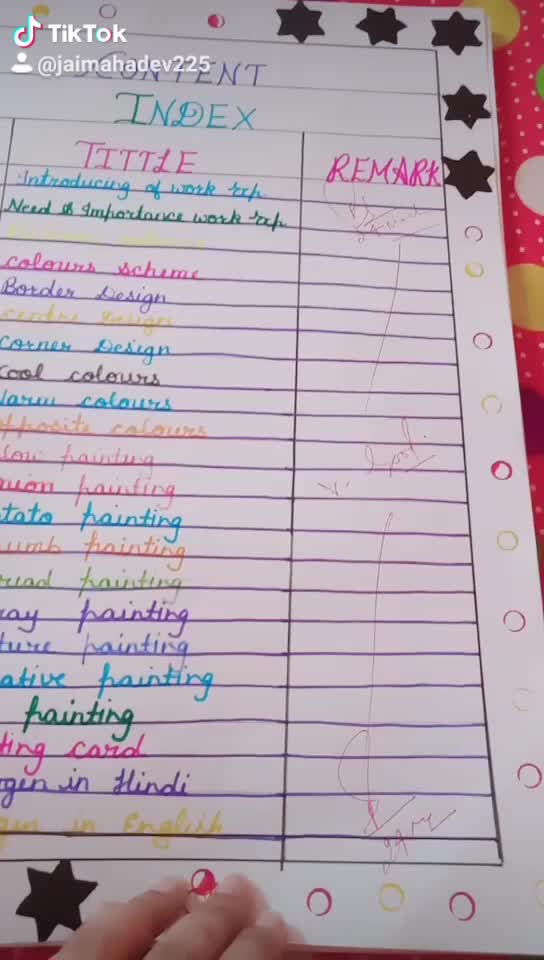 TikTok
@jaimahadev225
CONTENT
INDEX
TITTLE
REMARK
Introducing of work exp.
Need & Importance work exp.
colours scheme
Border Design
centre Design
corner Design
cool colours
Warm colours
opposite colours
painting
painting
tato painting
umb painting
read painting
ray painting
ture painting
ative painting
painting
ting card
gen in Hindi
gen in English